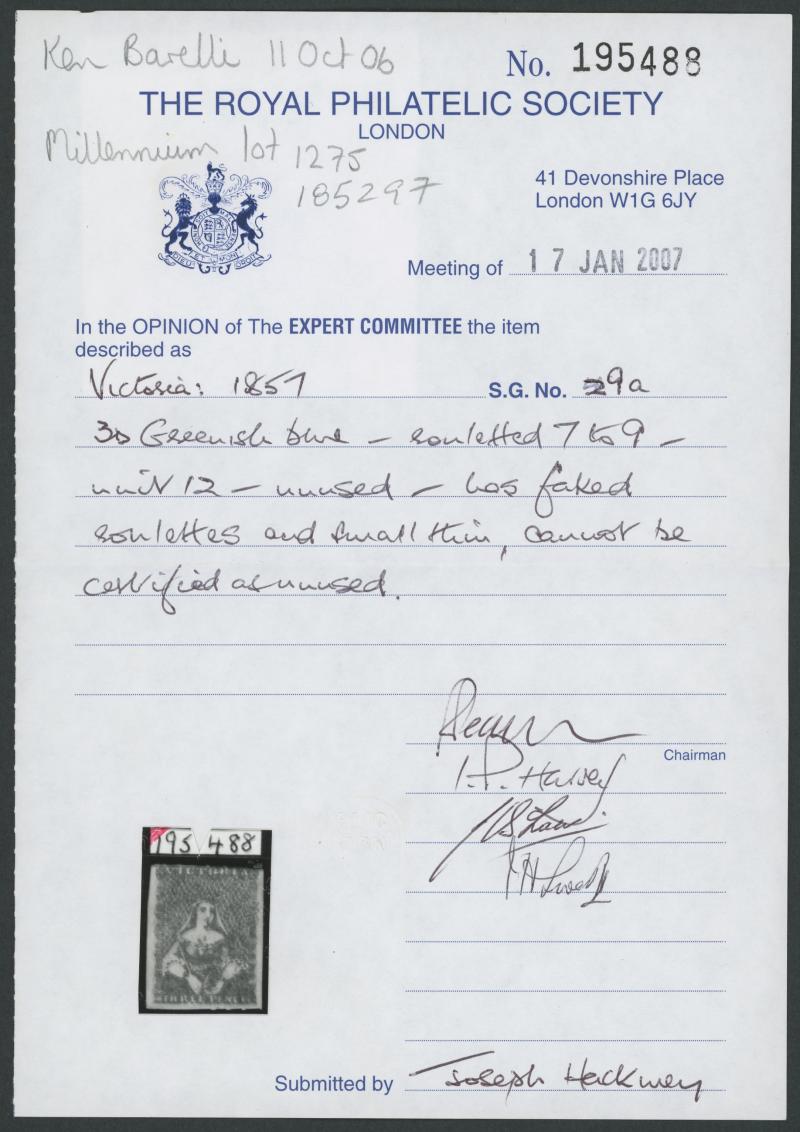 Ken Barelli 11 Oct 06
No. 195488
THE ROYAL PHILATELIC SOCIETY
LONDON
Millennium lot 1275
185297
41 Devonshire Place
London W1G 6JY
Meeting of 17 JAN 2007
In the OPINION of The EXPERT COMMITTEE the item
described as
Victoria: 1857 S.G. No. 29a
3D Greenish blue – rouletted 7 to 9 –
unit 12 – unused – has faked
roulettes and small thin, cannot be
certified as unused.
Chairman
I.P. Harvey
195488
VICTORIA
THREE PENCE
Submitted by Joseph Hackmey